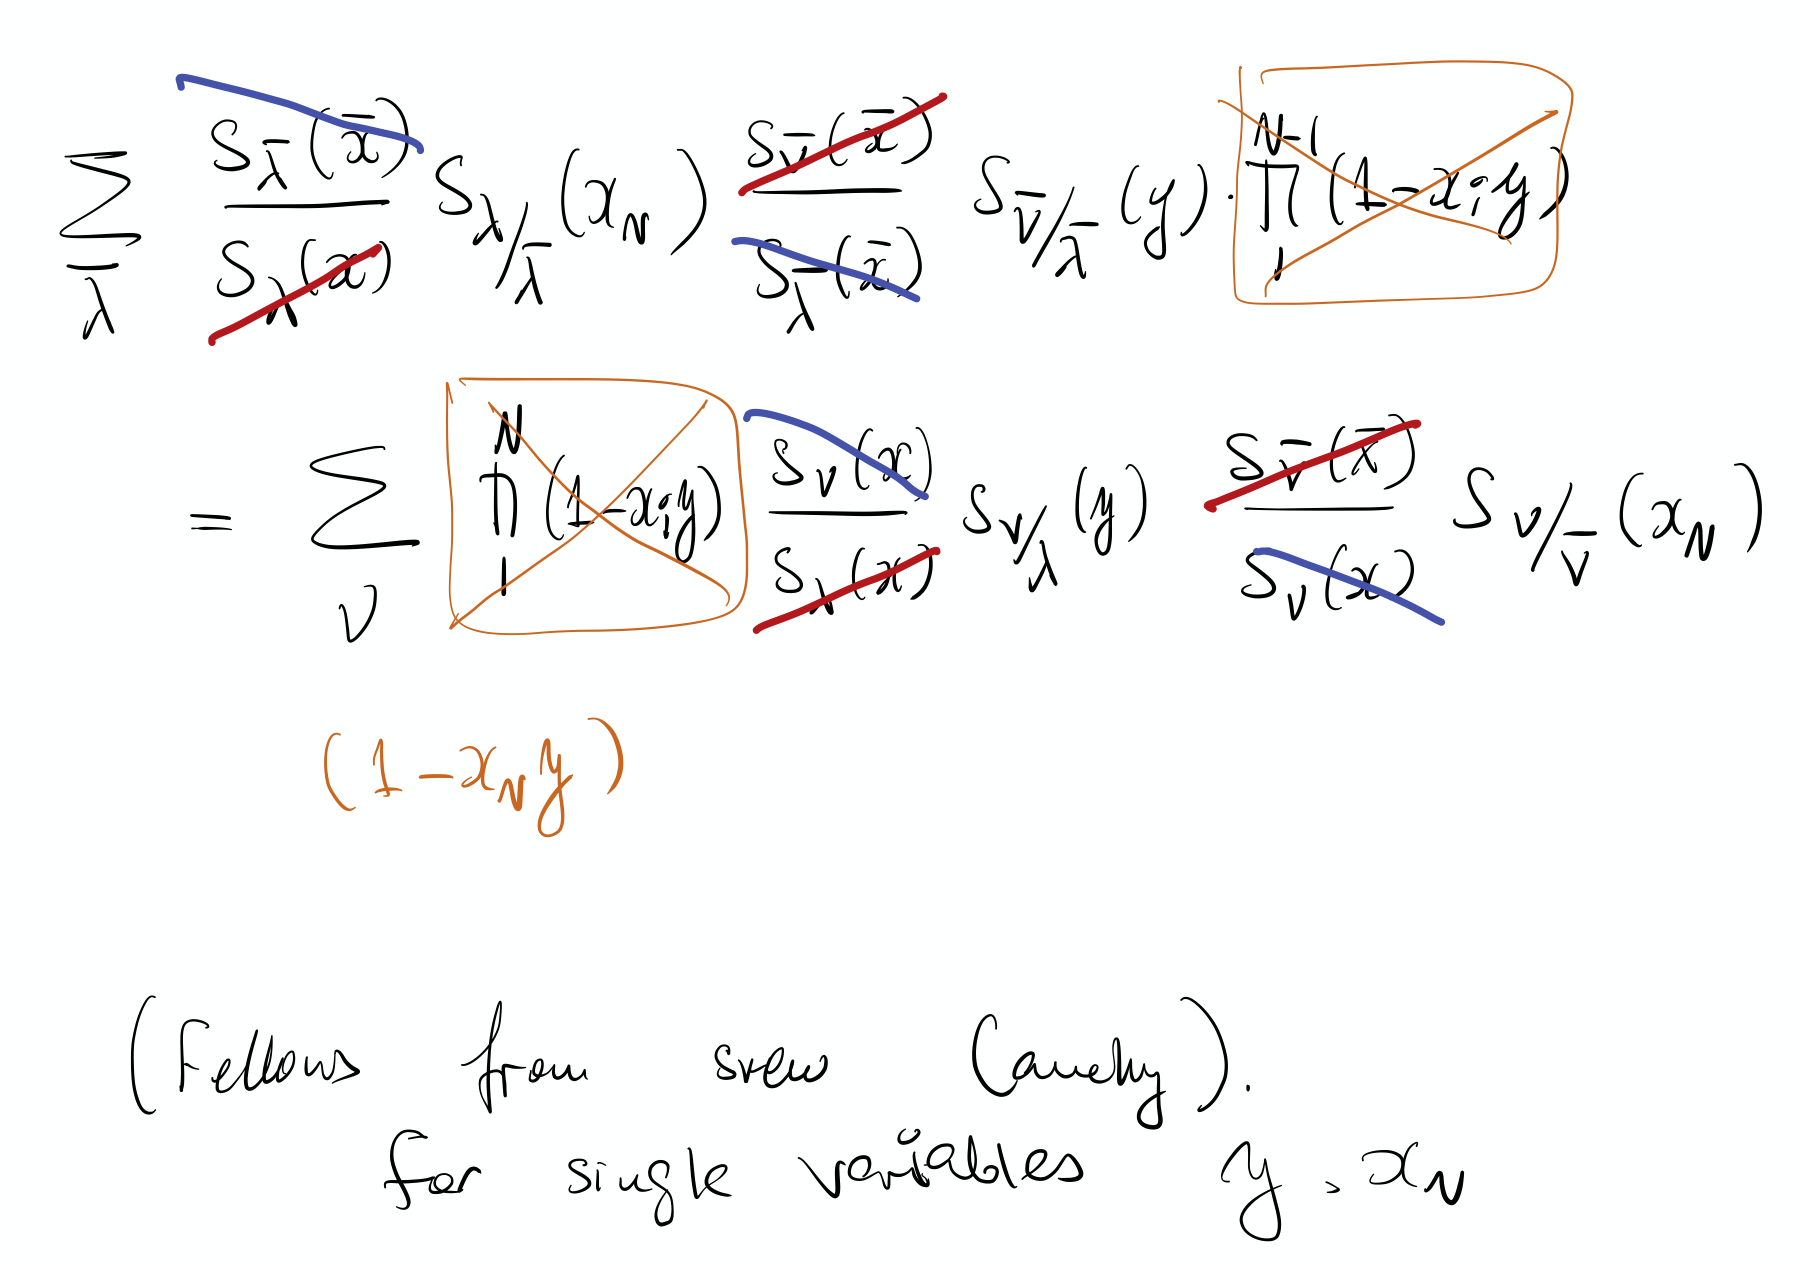 \sum_{\bar{λ}} \frac{S_{\bar{λ}}(\bar{x})}{S_λ(x)} S_{λ/\bar{λ}}(x_N) \frac{S_{\bar{ν}}(\bar{x})}{S_{\bar{λ}}(\bar{x})} S_{\bar{ν}/\bar{λ}}(y) · \prod_1^{N-1} (1-x_i y)
= \sum_ν \prod_1^N (1-x_i y) \frac{S_ν(x)}{S_λ(x)} S_{ν/λ}(y) \frac{S_{\bar{ν}}(\bar{x})}{S_ν(x)} S_{ν/\bar{ν}}(x_N)
(1-x_N y)
(Follows from skew Cauchy).
for single variables y, x_N